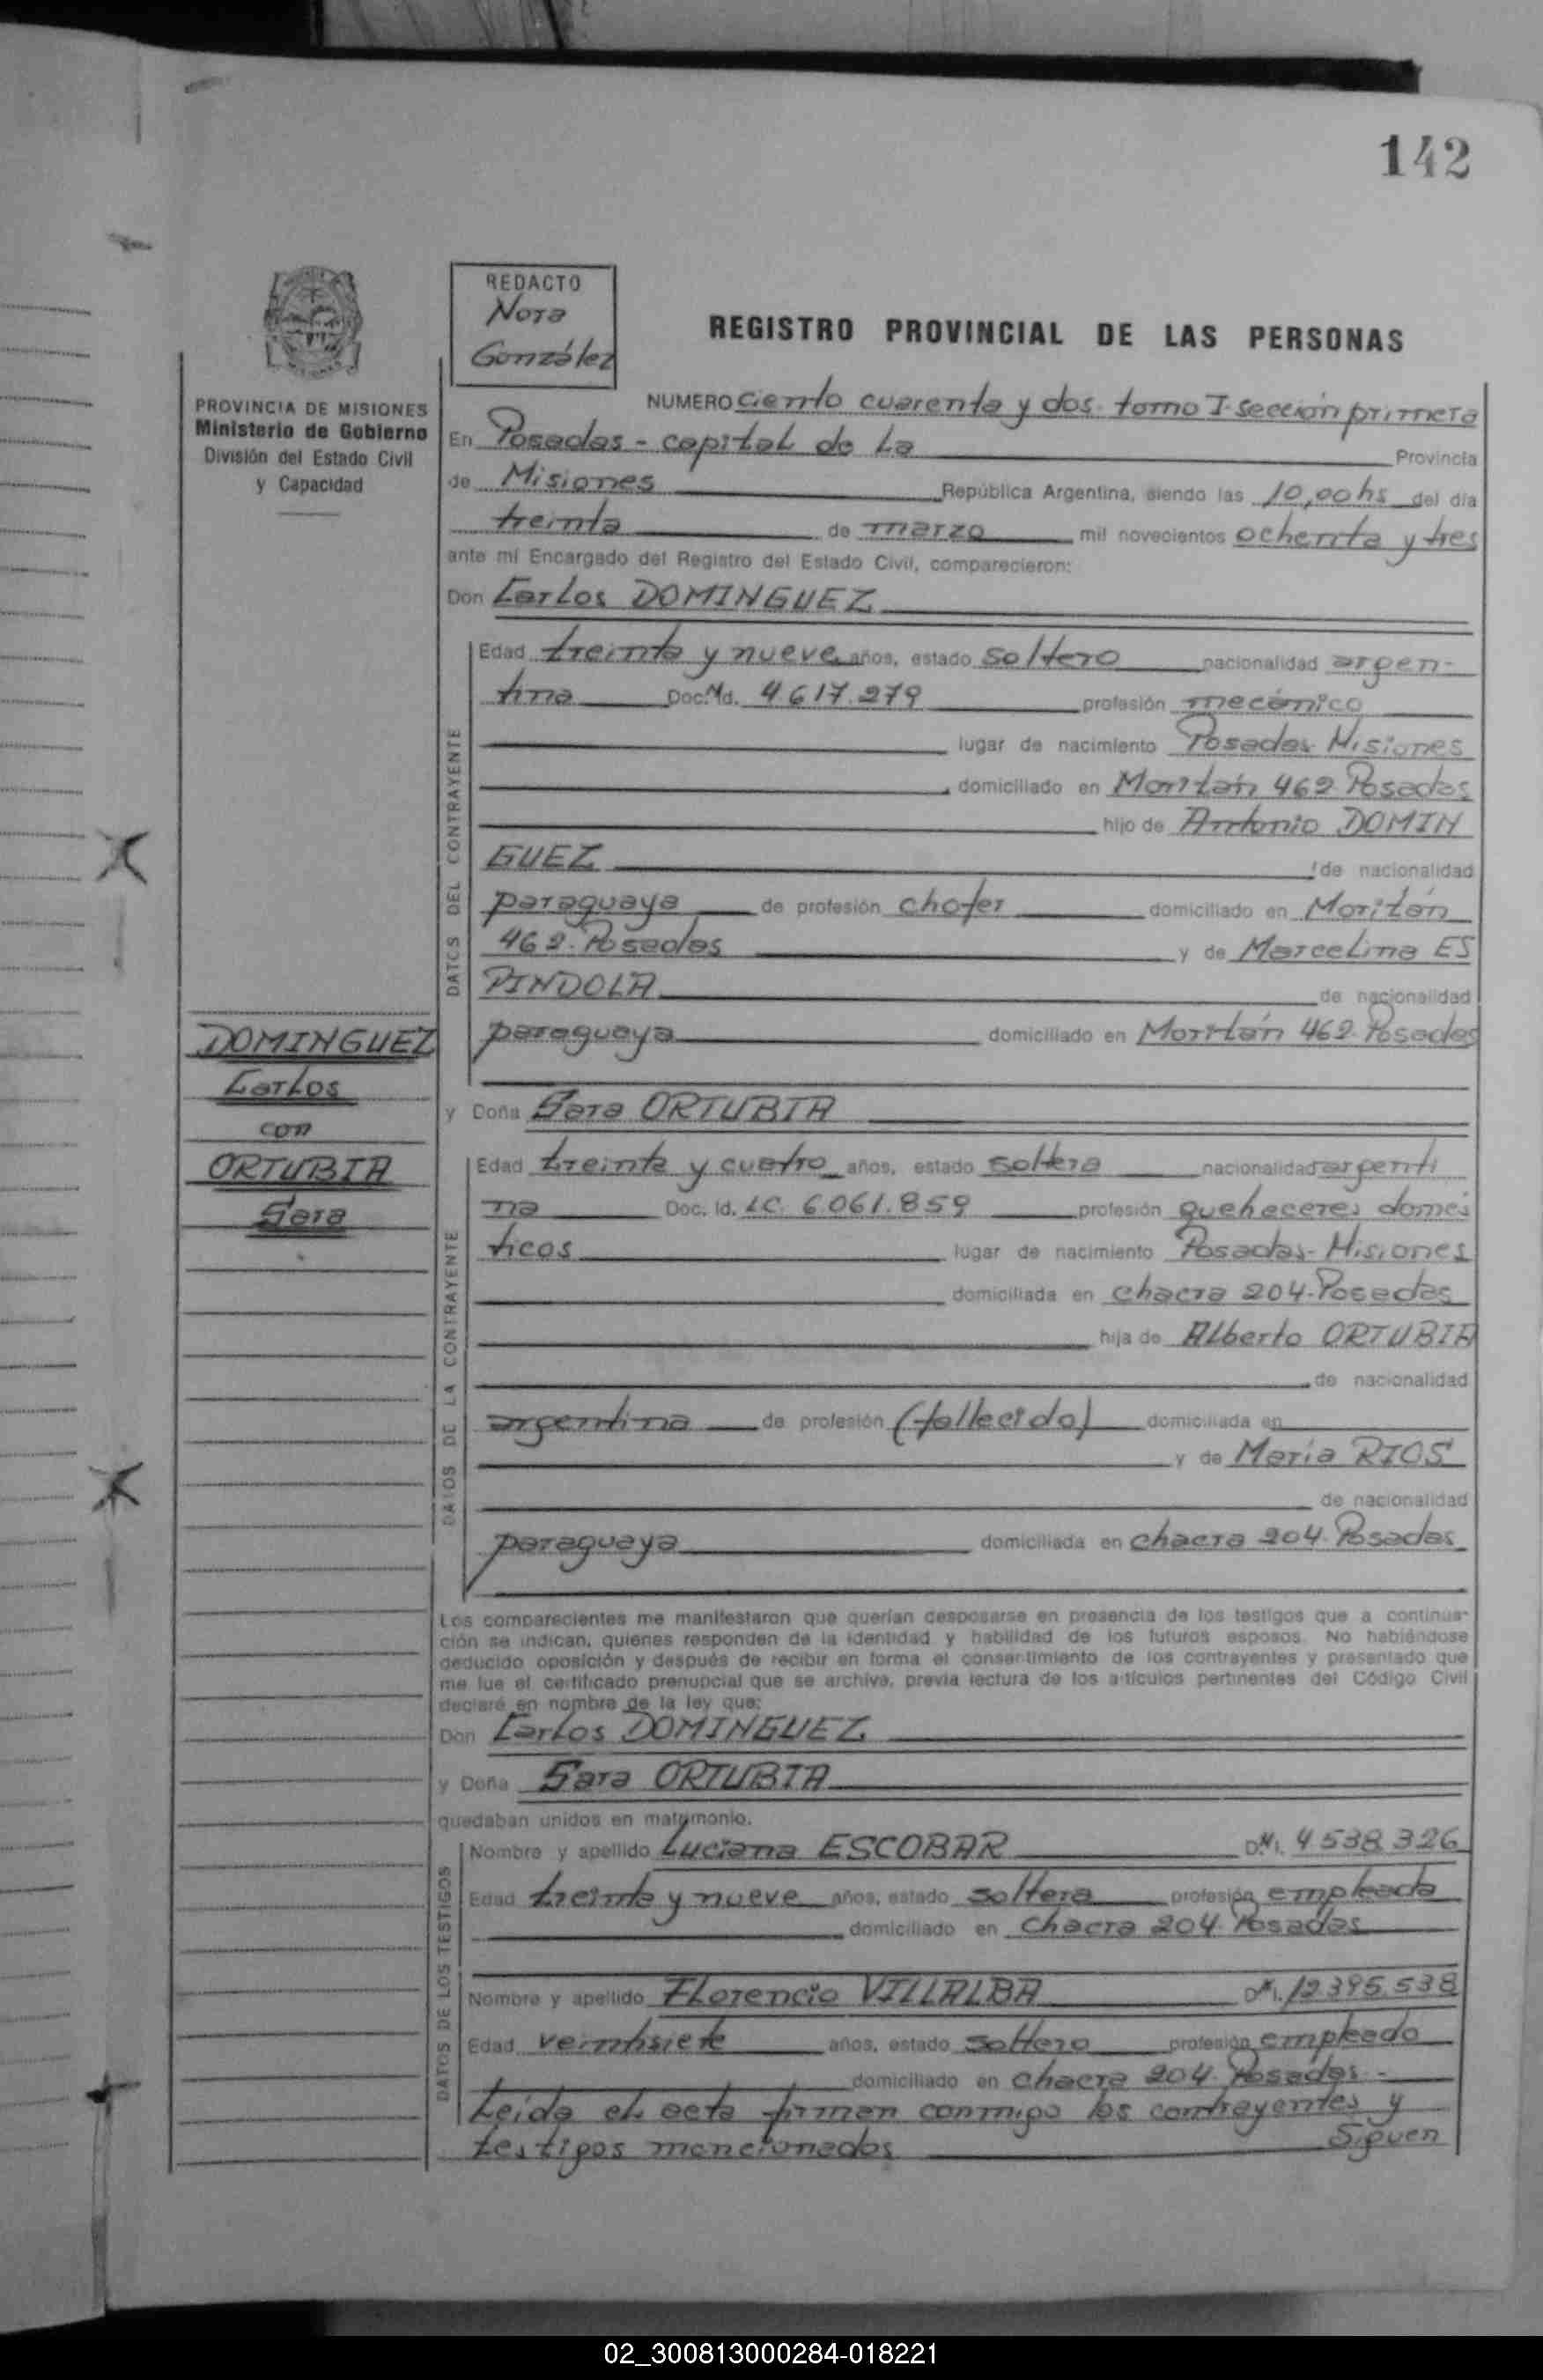 142
REDACTO
Nora
González
REGISTRO PROVINCIAL DE LAS PERSONAS
PROVINCIA DE MISIONES
Ministerio de Gobierno
División del Estado Civil
y Capacidad
NUMERO Ciento cuarenta y dos. tomo I. sección primera
En Posadas - capital de La Provincia
de Misiones República Argentina, siendo las 10,00hs del día
treinta de marzo mil novecientos ochenta y tres
ante mí Encargado del Registro del Estado Civil, comparecieron:
Don Carlos DOMINGUEZ
DATOS DEL CONTRAYENTE
Edad treinta y nueve años, estado soltero nacionalidad argen-
tina Doc. Id. 4.617.279 profesión mecánico
lugar de nacimiento Posadas Misiones
domiciliado en 462 Posadas
hijo de Antonio DOMIN
GUEZ de nacionalidad
paraguaya de profesión chofer domiciliado en
462. Posadas y de Marcelina ES
PINDOLA de nacionalidad
paraguaya domiciliado en 462. Posadas
DOMINGUEZ
Carlos
con
ORTUBIA
Sara
y Doña Sara ORTUBIA
DATOS DE LA CONTRAYENTE
Edad treinta y cuatro años, estado soltera nacionalidad argenti
na Doc. Id. LC. 6.061.859 profesión quehaceres domés
ticos lugar de nacimiento Posadas- Misiones
domiciliada en chacra 204. Posadas
hija de Alberto ORTUBIA
de nacionalidad
argentina de profesión (fallecido) domiciliada en
y de María RIOS
de nacionalidad
paraguaya domiciliada en chacra 204. Posadas
Los comparecientes me manifestaron que querían desposarse en presencia de los testigos que a continua-
ción se indican, quienes responden de la identidad y habilidad de los futuros esposos. No habiéndose
deducido oposición y después de recibir en forma el consentimiento de los contrayentes y presentado que
me fue el certificado prenupcial que se archiva, previa lectura de los artículos pertinentes del Código Civil
declaré en nombre de la ley que:
Don Carlos DOMINGUEZ
y Doña Sara ORTUBIA
quedaban unidos en matrimonio.
DATOS DE LOS TESTIGOS
Nombre y apellido Luciana ESCOBAR DNI. 4.538.326
Edad treinta y nueve años, estado soltera profesión empleada
domiciliado en chacra 204. Posadas
Nombre y apellido Florencio VILLALBA DNI. 12.395.538
Edad veintisiete años, estado soltero profesión empleado
domiciliado en chacra 204. Posadas-
Leída el acta firman conmigo los contrayentes y
testigos mencionados Siguen
02_300813000284-018221